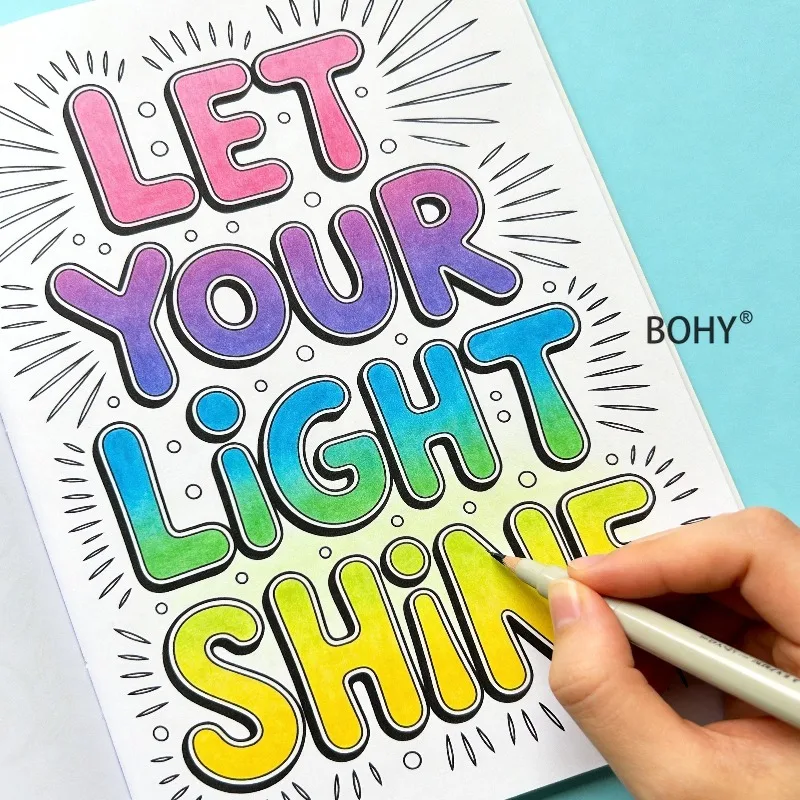 LET
YOUR
LiGHT
SHiNE
BOHY®